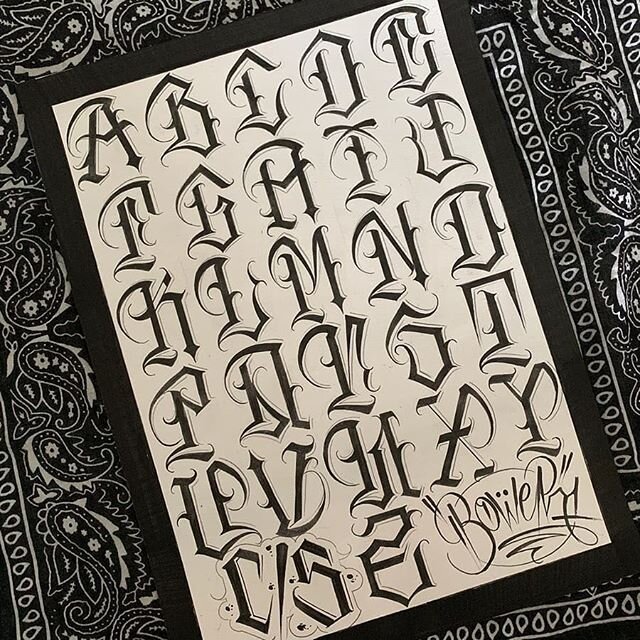 A B C D E
F G H I J
K L M N O
P Q R S T
U V W X Y
C/S Z "BOÜLER"